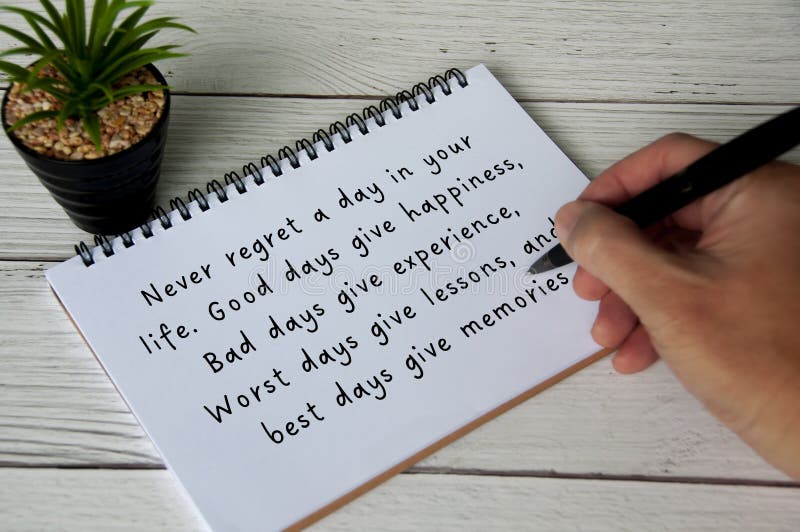 Never regret a day in your
life. Good days give happiness,
Bad days give experience,
Worst days give lessons, and
best days give memories